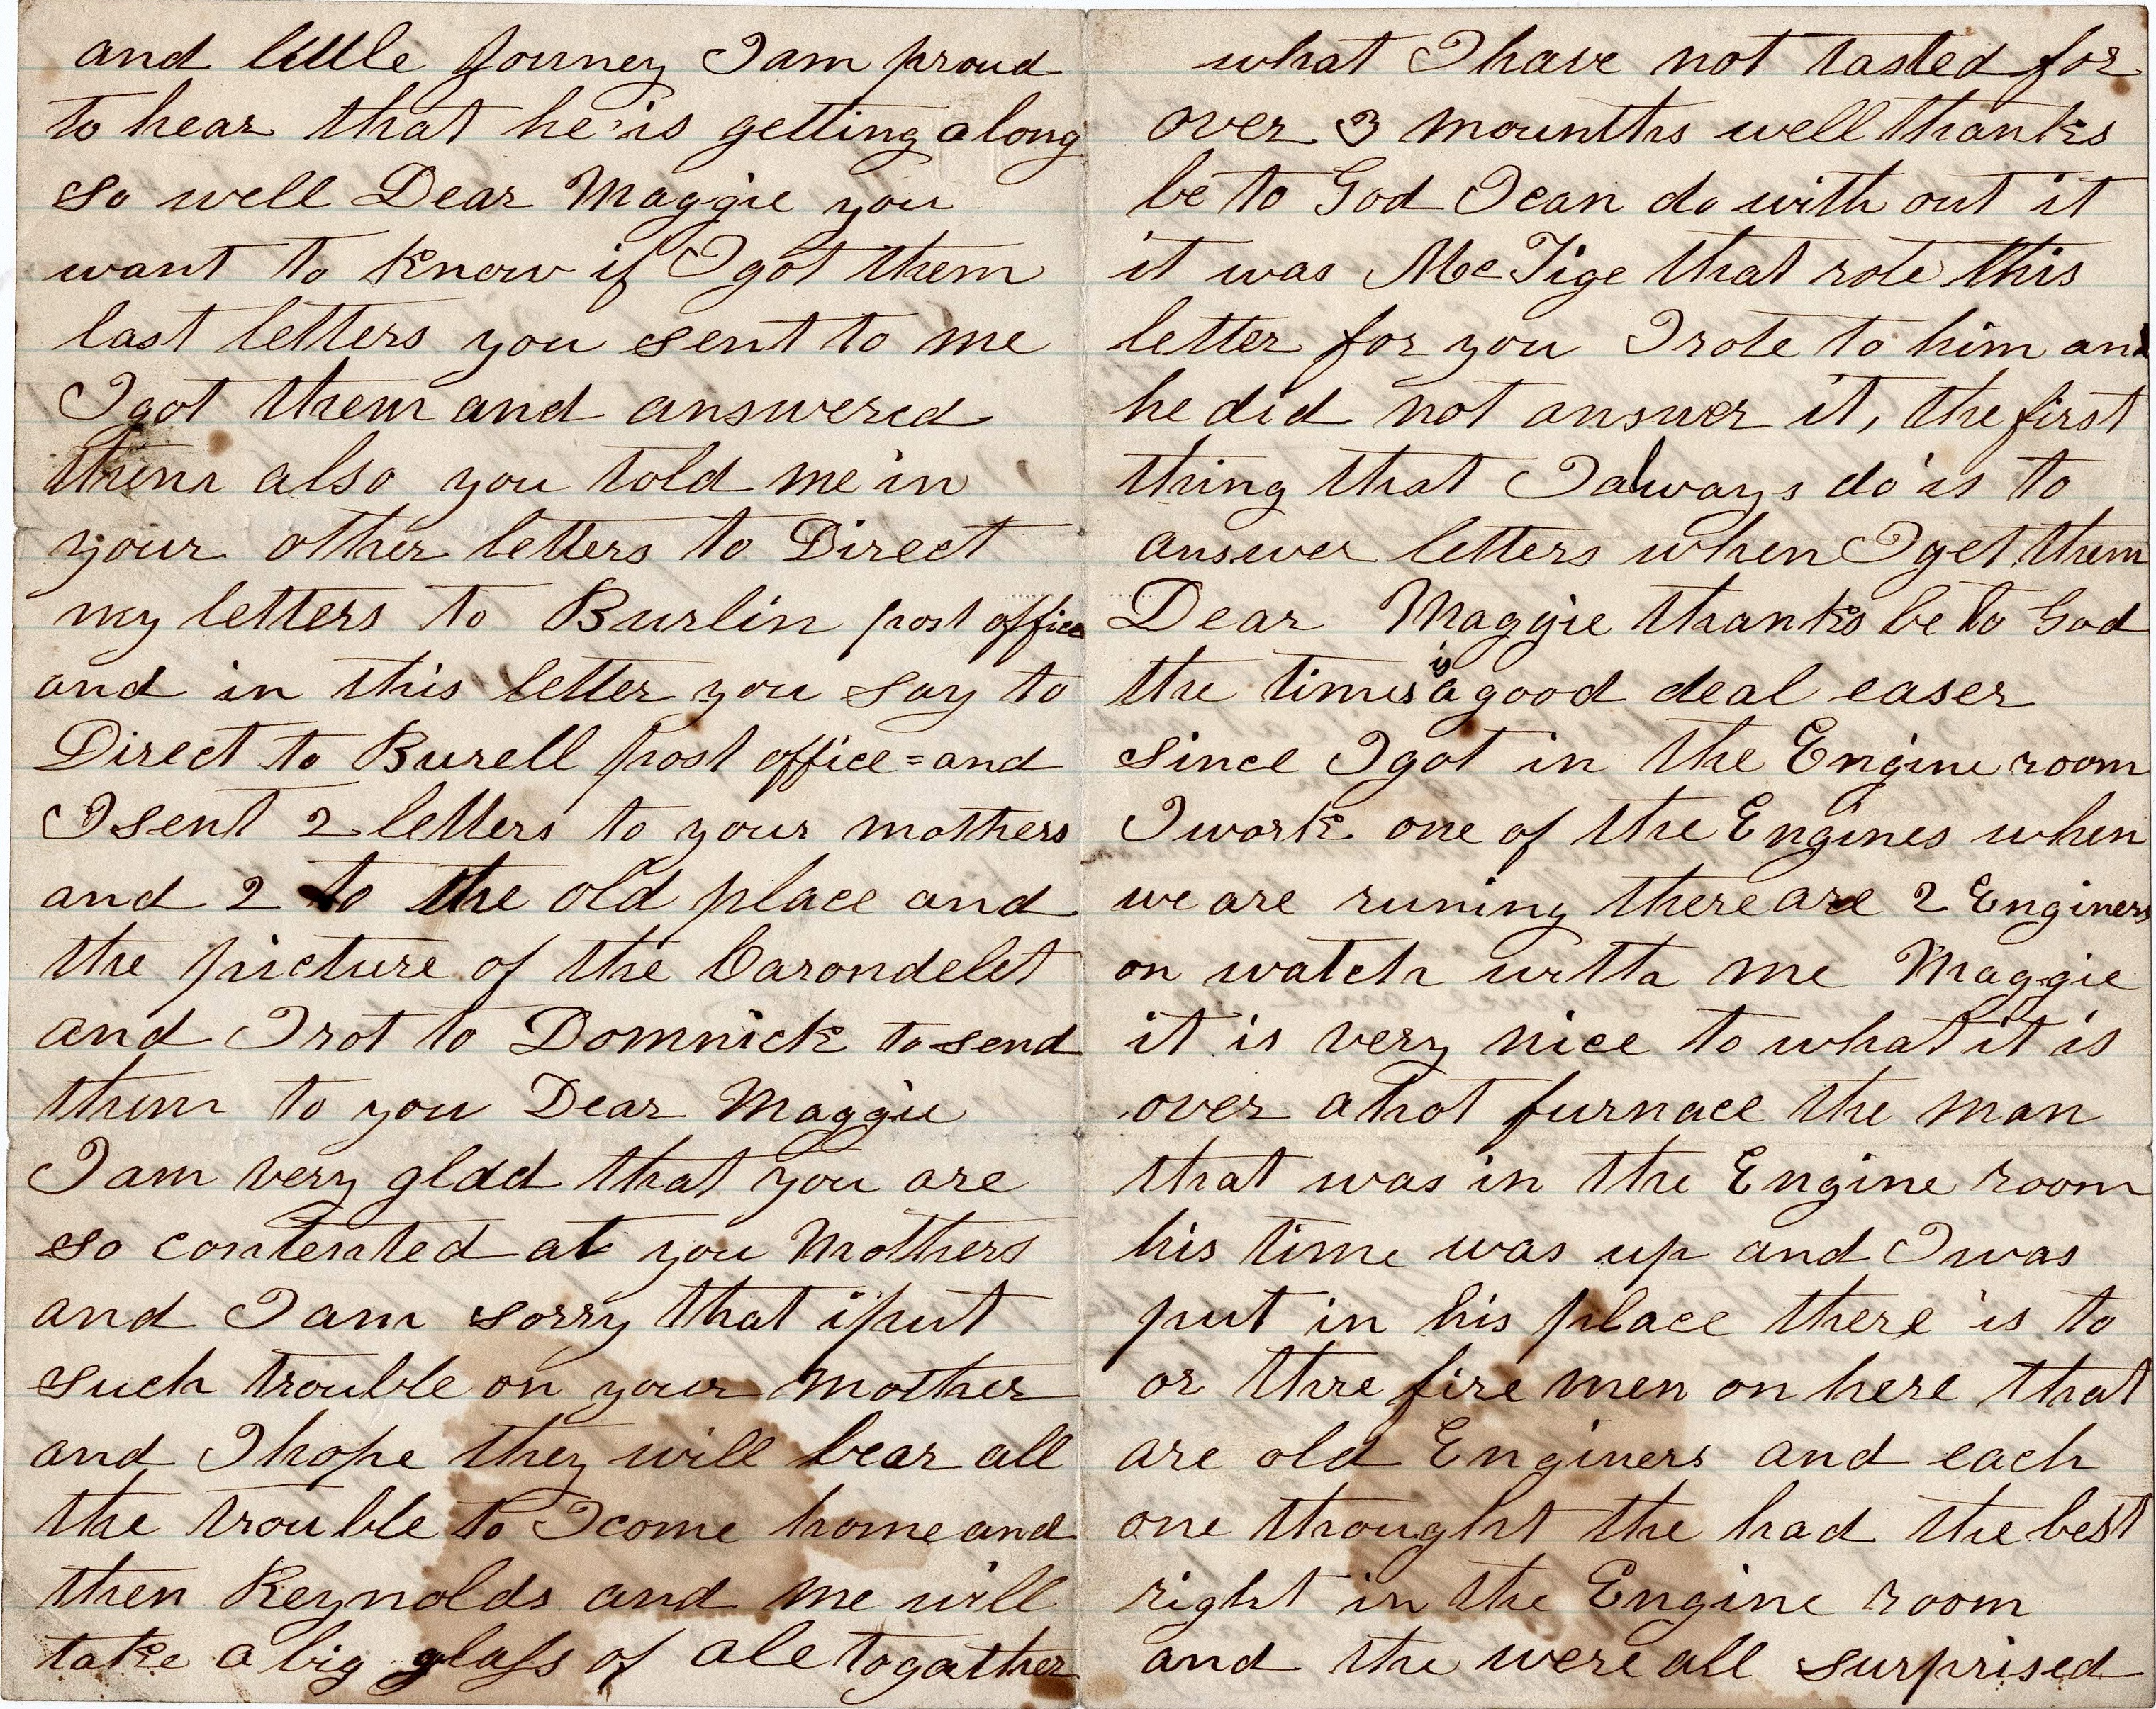 and little Jonney I am proud
to hear that he is getting along
so well Dear Maggie you
want to know if I got them
last letters you sent to me
I got them and answered
them also you told me in
your other letters to Direct
my letters to Burlin post office
and in this letter you say to
Direct to Burell post office = and
I sent 2 letters to your mothers
and 2 to the old place and
the picture of the Carondelet
and I rot to Domnick to send
them to you Dear Maggie
I am very glad that you are
so contented at you Mothers
and I am sorry that i put
such trouble on your Mother
and I hope they will bear all
the trouble to I come home and
then Reynolds and me will
take a big glass of ale togather
what I have not tasted for
over 3 mounths well thanks
be to God I can do with out it
it was McTige that rote this
letter for you I rote to him and
he did not answer it, the first
thing that I always do is to
answer letters when I get them
Dear Maggie thanks be to God
the times is a good deal easer
since I got in the Engine room
I work one of the Engines when
we are runing there are 2 Enginers
on watch with me Maggie
it is very nice to what it is
over a hot furnace the man
that was in the Engine room
his time was up and I was
put in his place there is to
or thre fire men on here that
are old Enginers and each
one thought the had the best
right in the Engine room
and the were all surprised